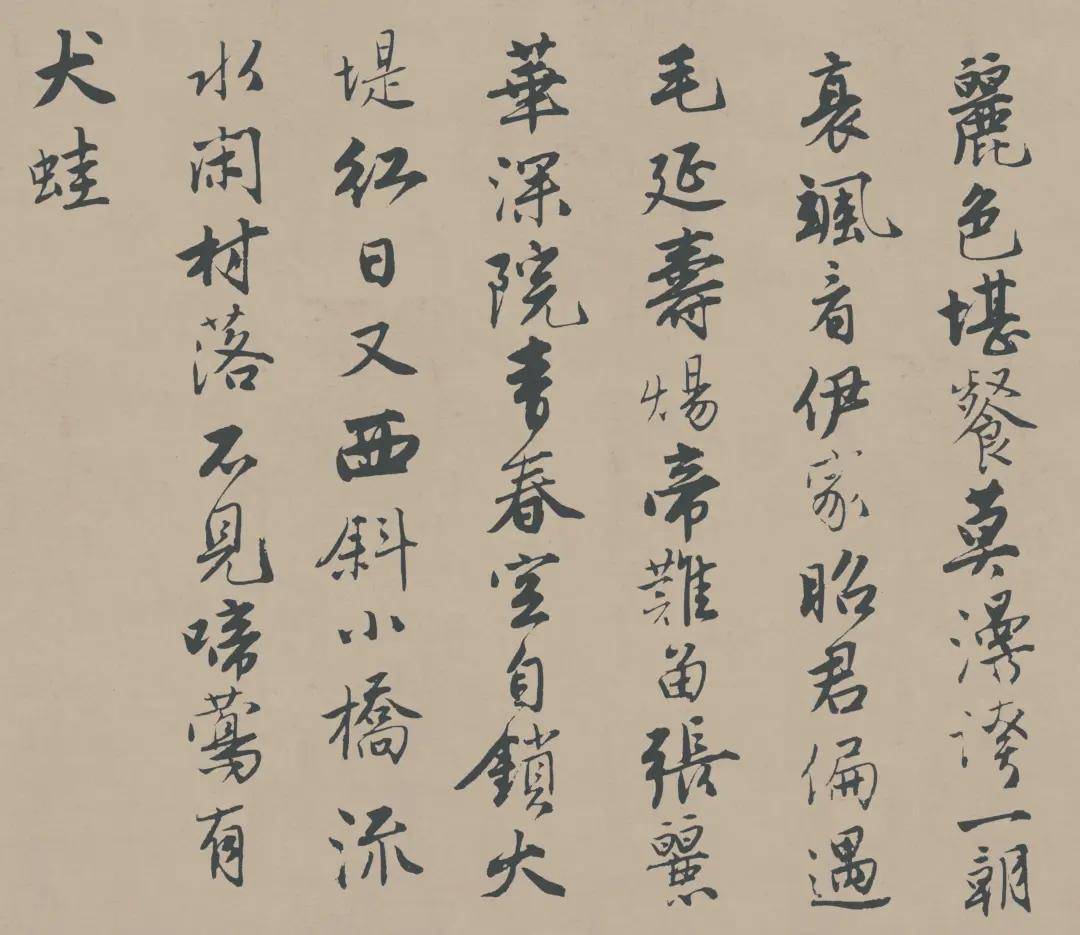 麗色堪餐莫漫誇一朝
衰颯看伊家昭君偏遇
毛延壽煬帝難留張麗
華深院青春空自鎖大
堤紅日又西斜小橋流
水閑村落不見啼鶯有
犬蛙